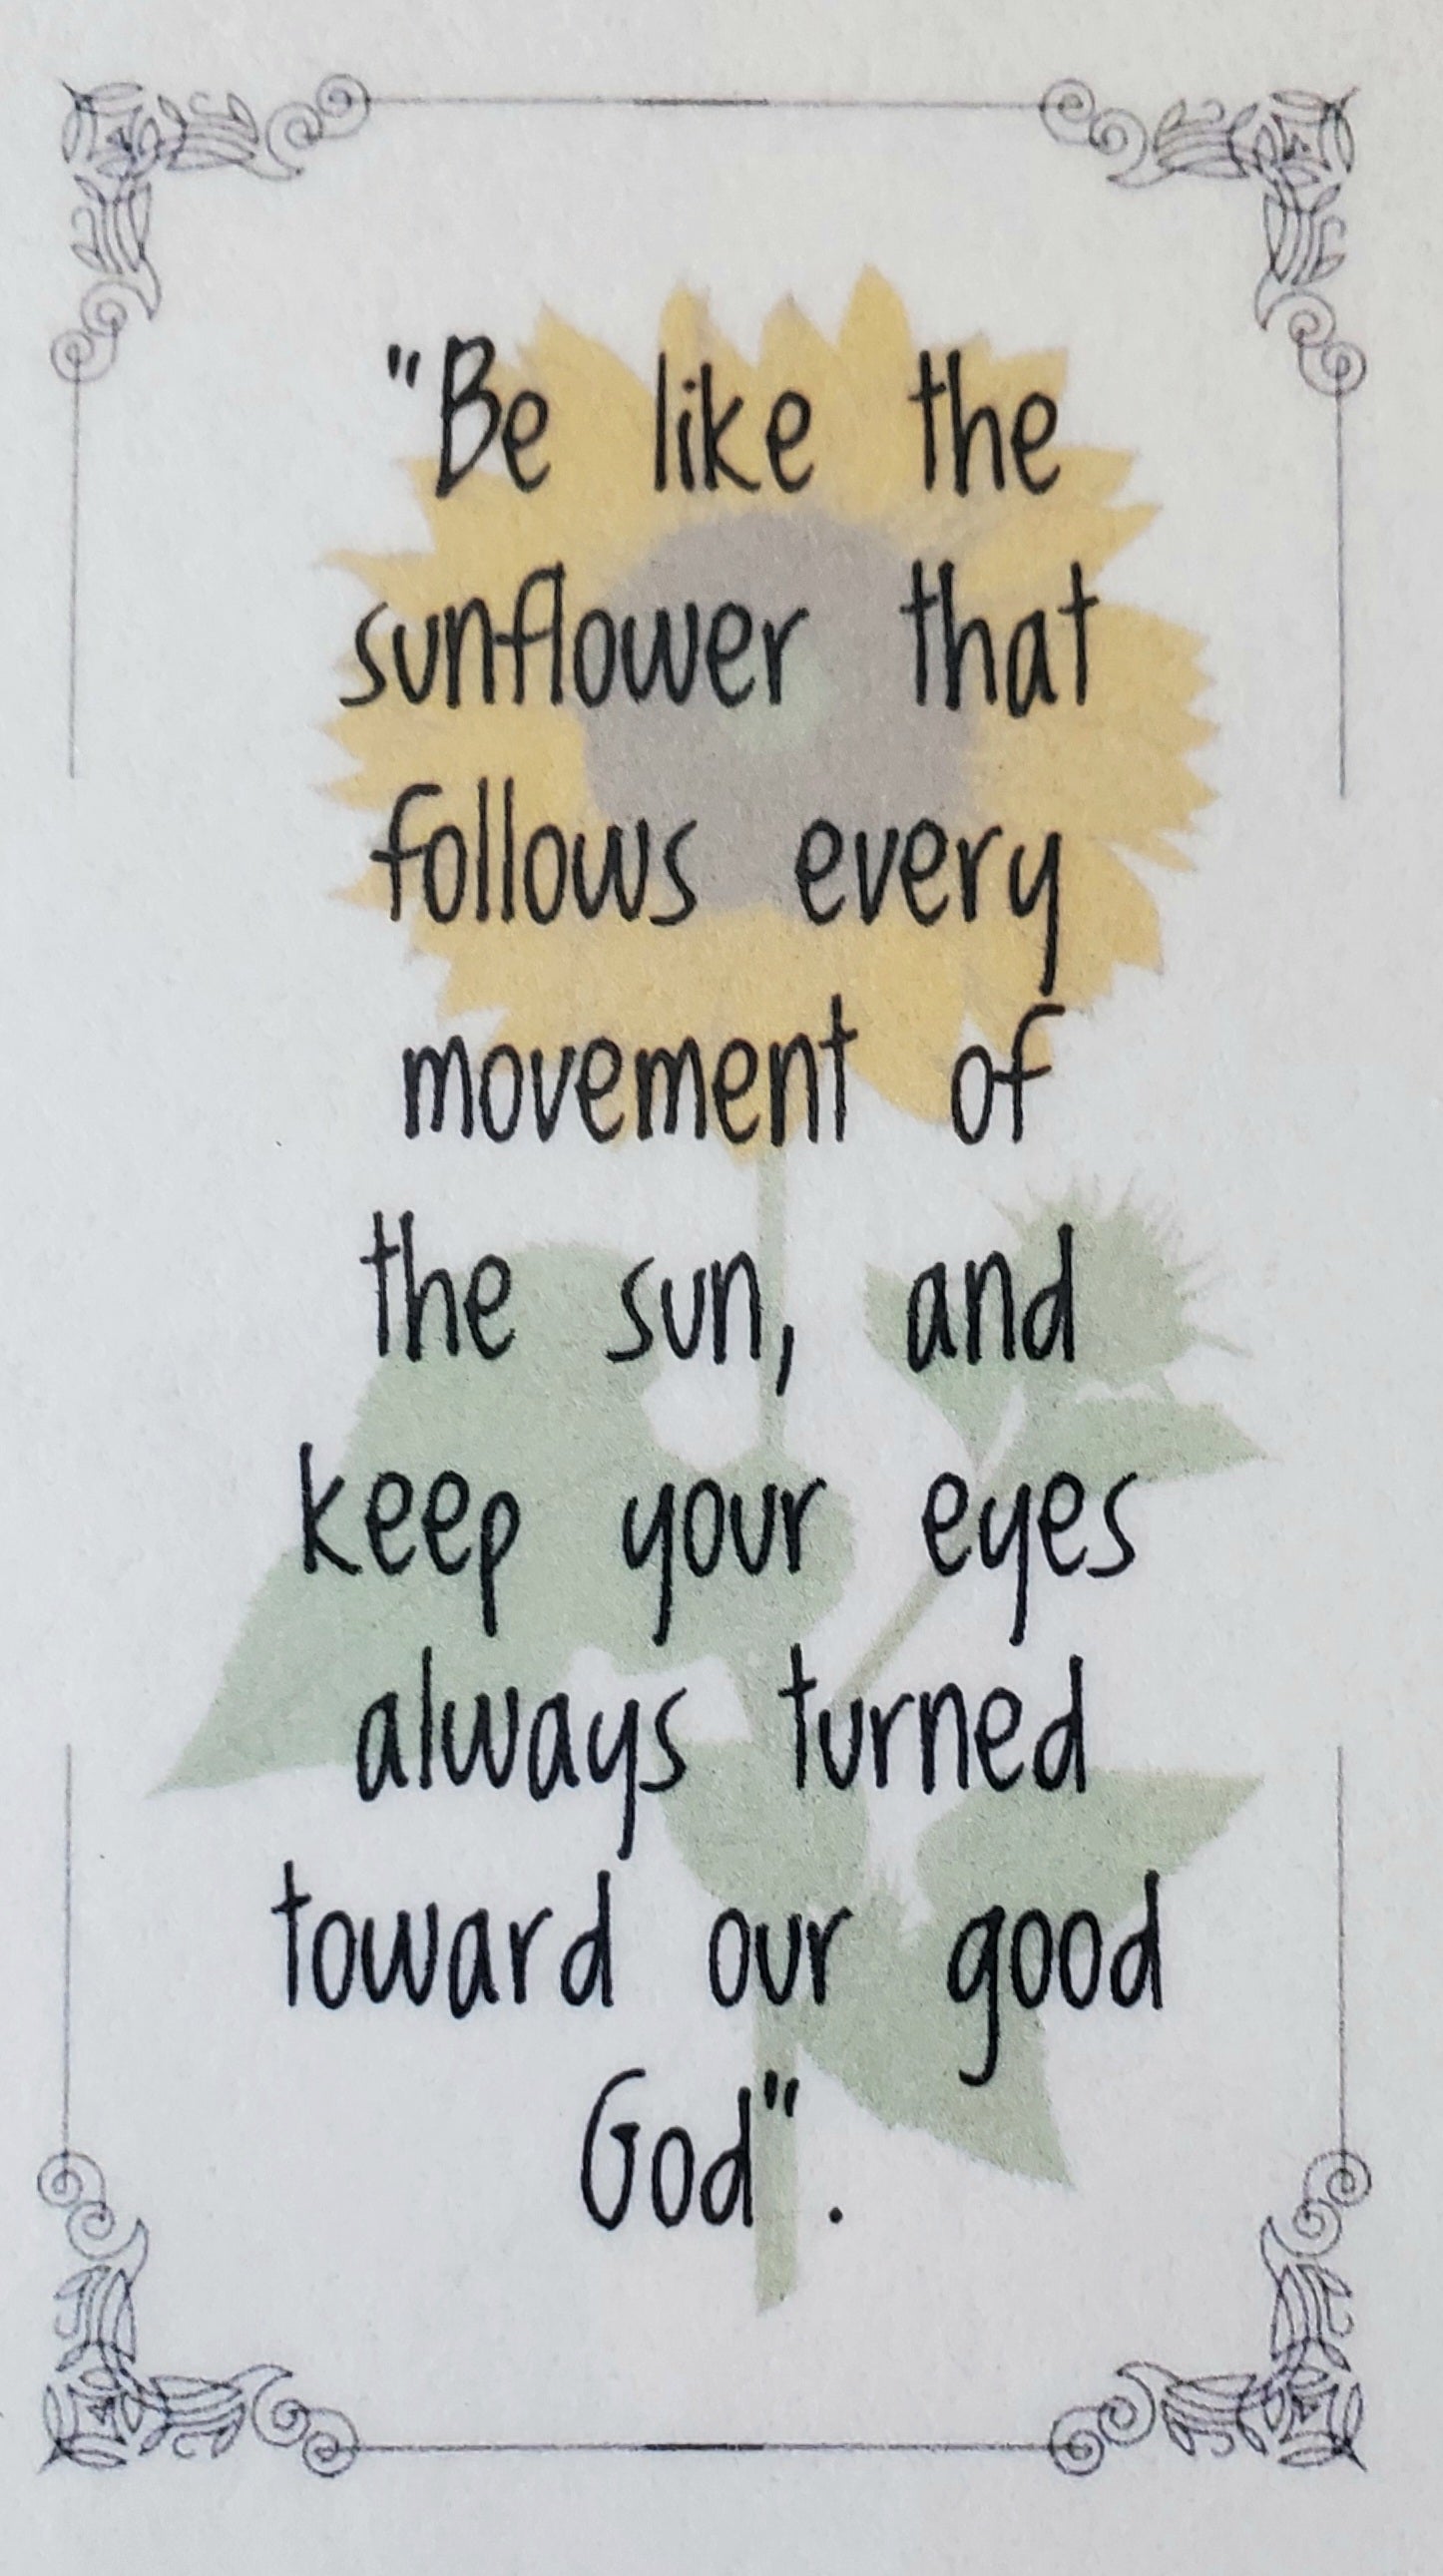 "Be like the
sunflower that
follows every
movement of
the sun, and
keep your eyes
always turned
toward our good
God".